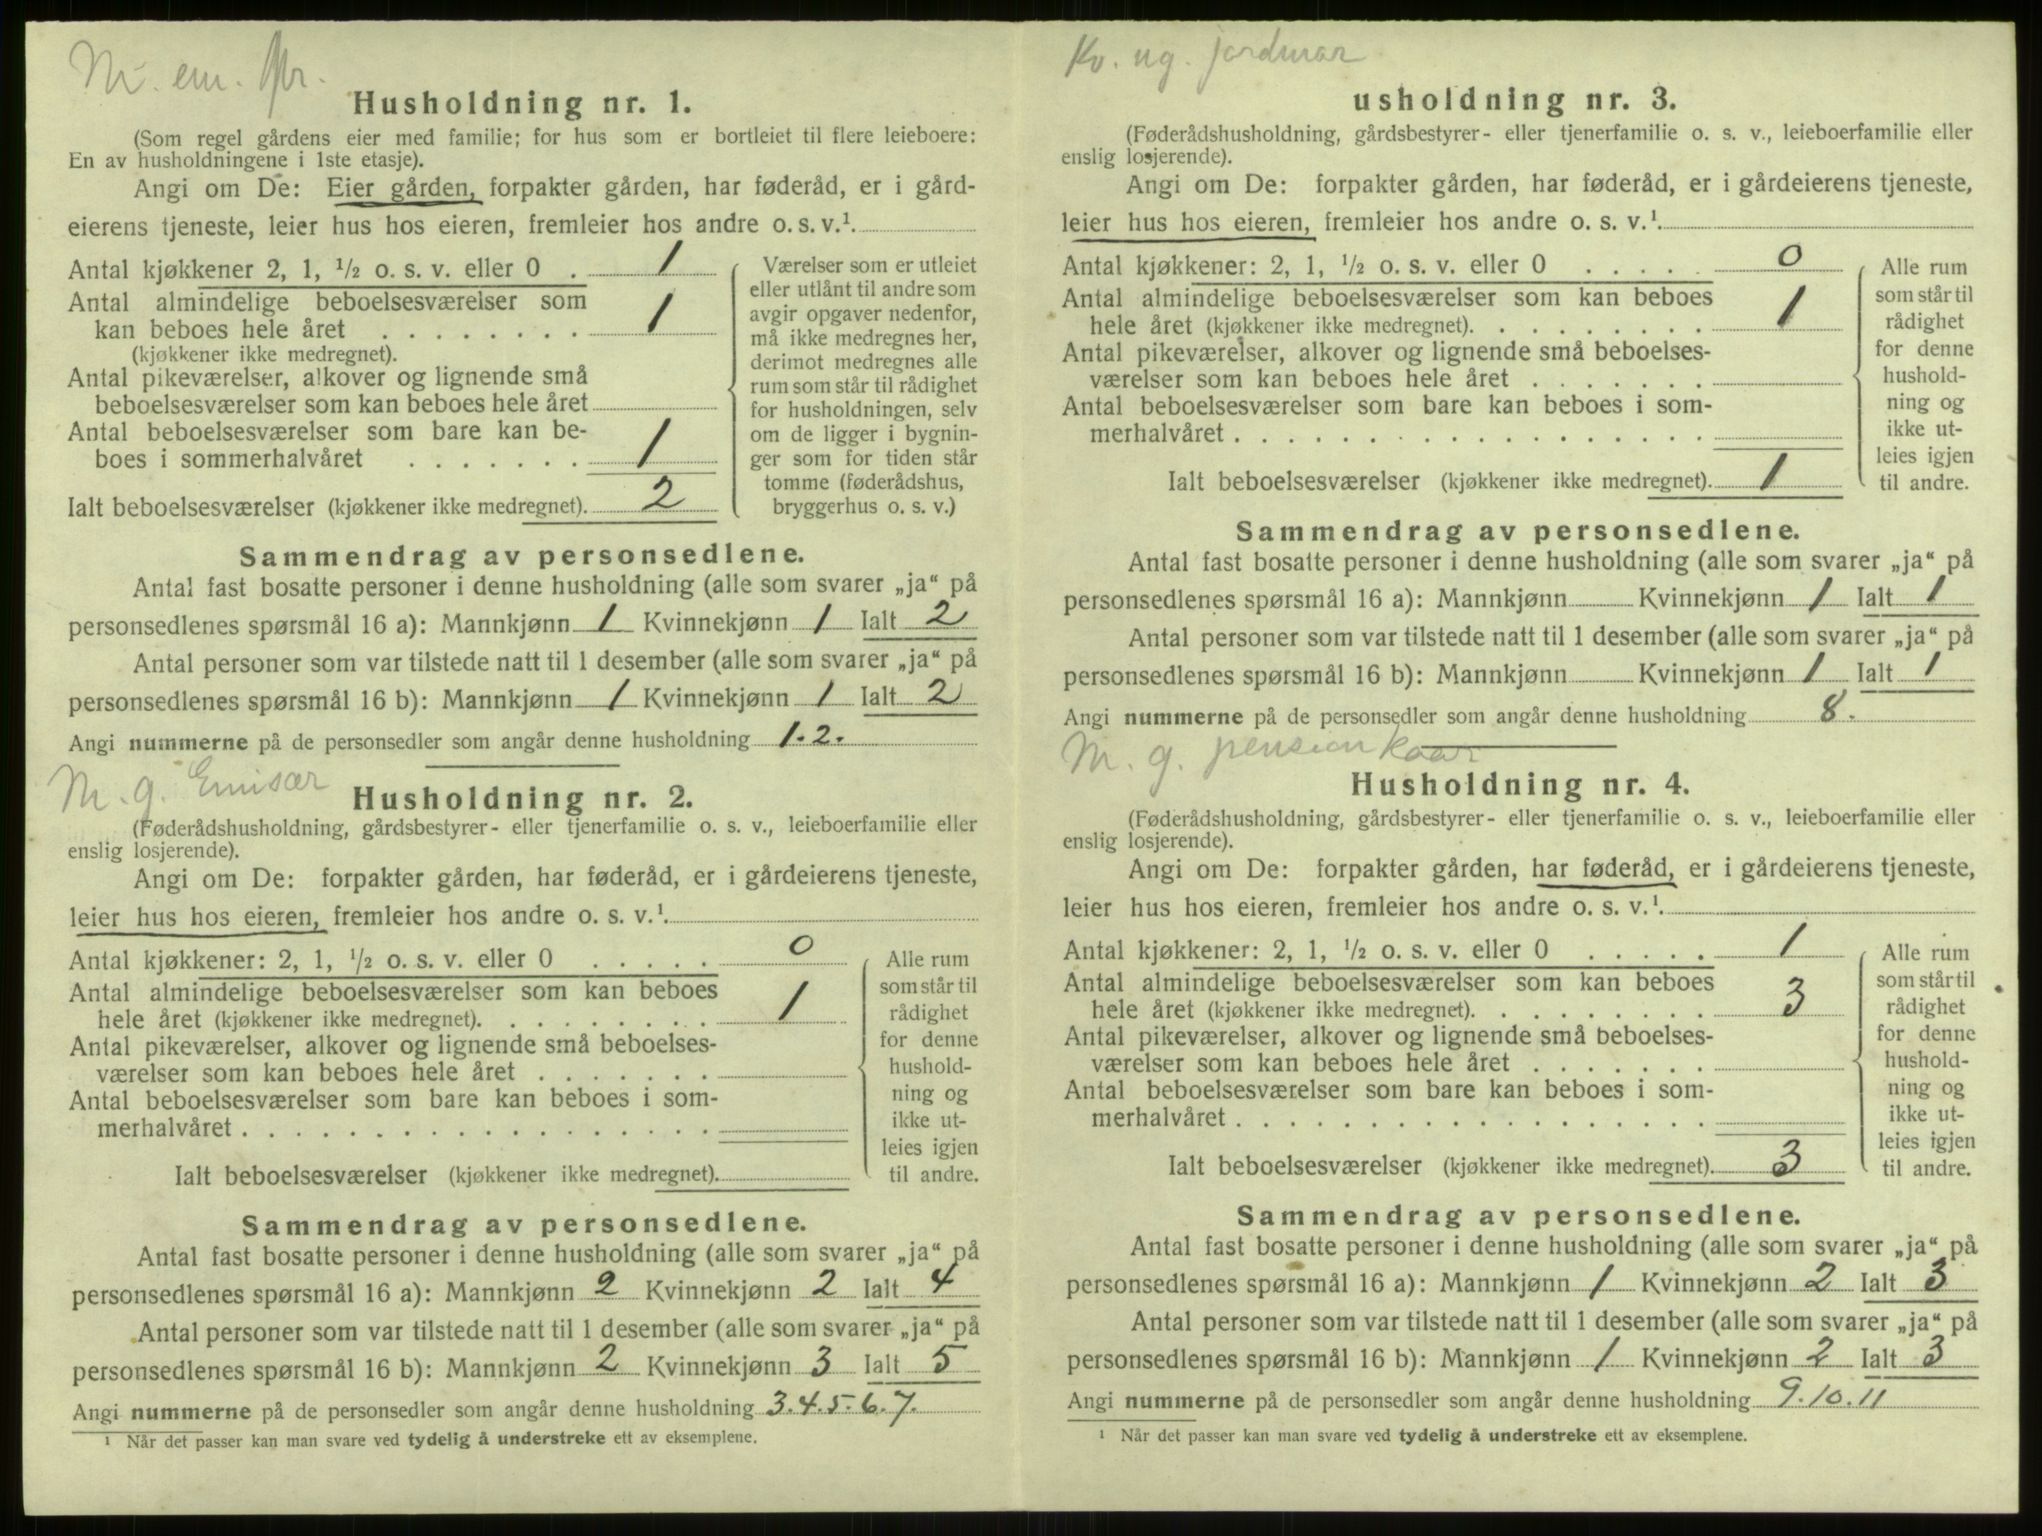 M. em.
Husholdning nr. 1.
(Som regel gårdens eier med familie; for hus som er bortleiet til flere leieboere:
En av husholdningene i 1ste etasje).
Angi om De: Eier gården, forpakter gården, har føderåd, er i gård-
eierens tjeneste, leier hus hos eieren, fremleier hos andre o. s. v.¹.
Antal kjøkkener 2, 1, ½ o. s. v. eller 0 . 1
Antal almindelige beboelsesværelser som
kan beboes hele året . . . . . . . . 1
(kjøkkener ikke medregnet).
Antal pikeværelser, alkover og lignende små
beboelsesværelser som kan beboes hele året
Antal beboelsesværelser som bare kan be-
boes i sommerhalvåret . . . . . . . 1
Ialt beboelsesværelser (kjøkkener ikke medregnet). 2
Værelser som er utleiet
eller utlånt til andre som
avgir opgaver nedenfor,
må ikke medregnes her,
derimot medregnes alle
rum som står til rådighet
for husholdningen, selv
om de ligger i bygnin-
ger som for tiden står
tomme (føderådshus,
bryggerhus o. s. v.)
Sammendrag av personsedlene.
Antal fast bosatte personer i denne husholdning (alle som svarer „ja“ på
personsedlenes spørsmål 16 a): Mannkjønn 1 Kvinnekjønn 1 Ialt 2
Antal personer som var tilstede natt til 1 desember (alle som svarer „ja“ på
personsedlenes spørsmål 16 b): Mannkjønn 1 Kvinnekjønn 1 Ialt 2
Angi nummerne på de personsedler som angår denne husholdning 1.2.
M. g. Emisær
Husholdning nr. 2.
(Føderådshusholdning, gårdsbestyrer- eller tjenerfamilie o. s. v., leieboerfamilie eller
enslig losjerende).
Angi om De: forpakter gården, har føderåd, er i gårdeierens tjeneste,
leier hus hos eieren, fremleier hos andre o. s. v.¹.
Antal kjøkkener: 2, 1, ½ o. s. v. eller 0 . . . . . 0
Antal almindelige beboelsesværelser som kan beboes
hele året (kjøkkener ikke medregnet). . . . . . . . . 1
Antal pikeværelser, alkover og lignende små beboelses-
værelser som kan beboes hele året . . . . . . .
Antal beboelsesværelser som bare kan beboes i som-
merhalvåret . . . . . . . . . . . . . . . . . .
Ialt beboelsesværelser (kjøkkener ikke medregnet).
Alle rum
som står til
rådighet
for denne
hushold-
ning og
ikke ut-
leies igjen
til andre.
Sammendrag av personsedlene.
Antal fast bosatte personer i denne husholdning (alle som svarer „ja“ på
personsedlenes spørsmål 16 a): Mannkjønn 2 Kvinnekjønn 2 Ialt 4
Antal personer som var tilstede natt til 1 desember (alle som svarer „ja“ på
personsedlenes spørsmål 16 b): Mannkjønn 2 Kvinnekjønn 3 Ialt 5
Angi nummerne på de personsedler som angår denne husholdning 3.4.5.6.7.
¹ Når det passer kan man svare ved tydelig å understreke ett av eksemplene.
Kv. ug. jordmor
usholdning nr. 3.
(Føderådshusholdning, gårdsbestyrer- eller tjenerfamilie o. s. v., leieboerfamilie eller
enslig losjerende).
Angi om De: forpakter gården, har føderåd, er i gårdeierens tjeneste,
leier hus hos eieren, fremleier hos andre o. s. v.¹.
Antal kjøkkener: 2, 1, ½ o. s. v. eller 0 . . . . . 0
Antal almindelige beboelsesværelser som kan beboes
hele året (kjøkkener ikke medregnet). . . . . . . . . 1
Antal pikeværelser, alkover og lignende små beboelses-
værelser som kan beboes hele året . . . . . . .
Antal beboelsesværelser som bare kan beboes i som-
merhalvåret . . . . . . . . . . . . . . . . . .
Ialt beboelsesværelser (kjøkkener ikke medregnet). 1
Alle rum
som står til
rådighet
for denne
hushold-
ning og
ikke ut-
leies igjen
til andre.
Sammendrag av personsedlene.
Antal fast bosatte personer i denne husholdning (alle som svarer „ja“ på
personsedlenes spørsmål 16 a): Mannkjønn Kvinnekjønn 1 Ialt 1
Antal personer som var tilstede natt til 1 desember (alle som svarer „ja“ på
personsedlenes spørsmål 16 b): Mannkjønn Kvinnekjønn 1 Ialt 1
Angi nummerne på de personsedler som angår denne husholdning 8.
M. g. pension kaar
Husholdning nr. 4.
(Føderådshusholdning, gårdsbestyrer- eller tjenerfamilie o. s. v., leieboerfamilie eller
enslig losjerende).
Angi om De: forpakter gården, har føderåd, er i gårdeierens tjeneste,
leier hus hos eieren, fremleier hos andre o. s. v.¹.
Antal kjøkkener: 2, 1, ½ o. s. v. eller 0 . . . . . 1
Antal almindelige beboelsesværelser som kan beboes
hele året (kjøkkener ikke medregnet). . . . . . . . . 3
Antal pikeværelser, alkover og lignende små beboelses-
værelser som kan beboes hele året . . . . . . .
Antal beboelsesværelser som bare kan beboes i som-
merhalvåret . . . . . . . . . . . . . . . . . .
Ialt beboelsesværelser (kjøkkener ikke medregnet). 3
Alle rum
som står til
rådighet
for denne
hushold-
ning og
ikke ut-
leies igjen
til andre.
Sammendrag av personsedlene.
Antal fast bosatte personer i denne husholdning (alle som svarer „ja“ på
personsedlenes spørsmål 16 a): Mannkjønn 1 Kvinnekjønn 2 Ialt 3
Antal personer som var tilstede natt til 1 desember (alle som svarer „ja“ på
personsedlenes spørsmål 16 b): Mannkjønn 1 Kvinnekjønn 2 Ialt 3
Angi nummerne på de personsedler som angår denne husholdning 9.10.11
¹ Når det passer kan man svare ved tydelig å understreke ett av eksemplene.